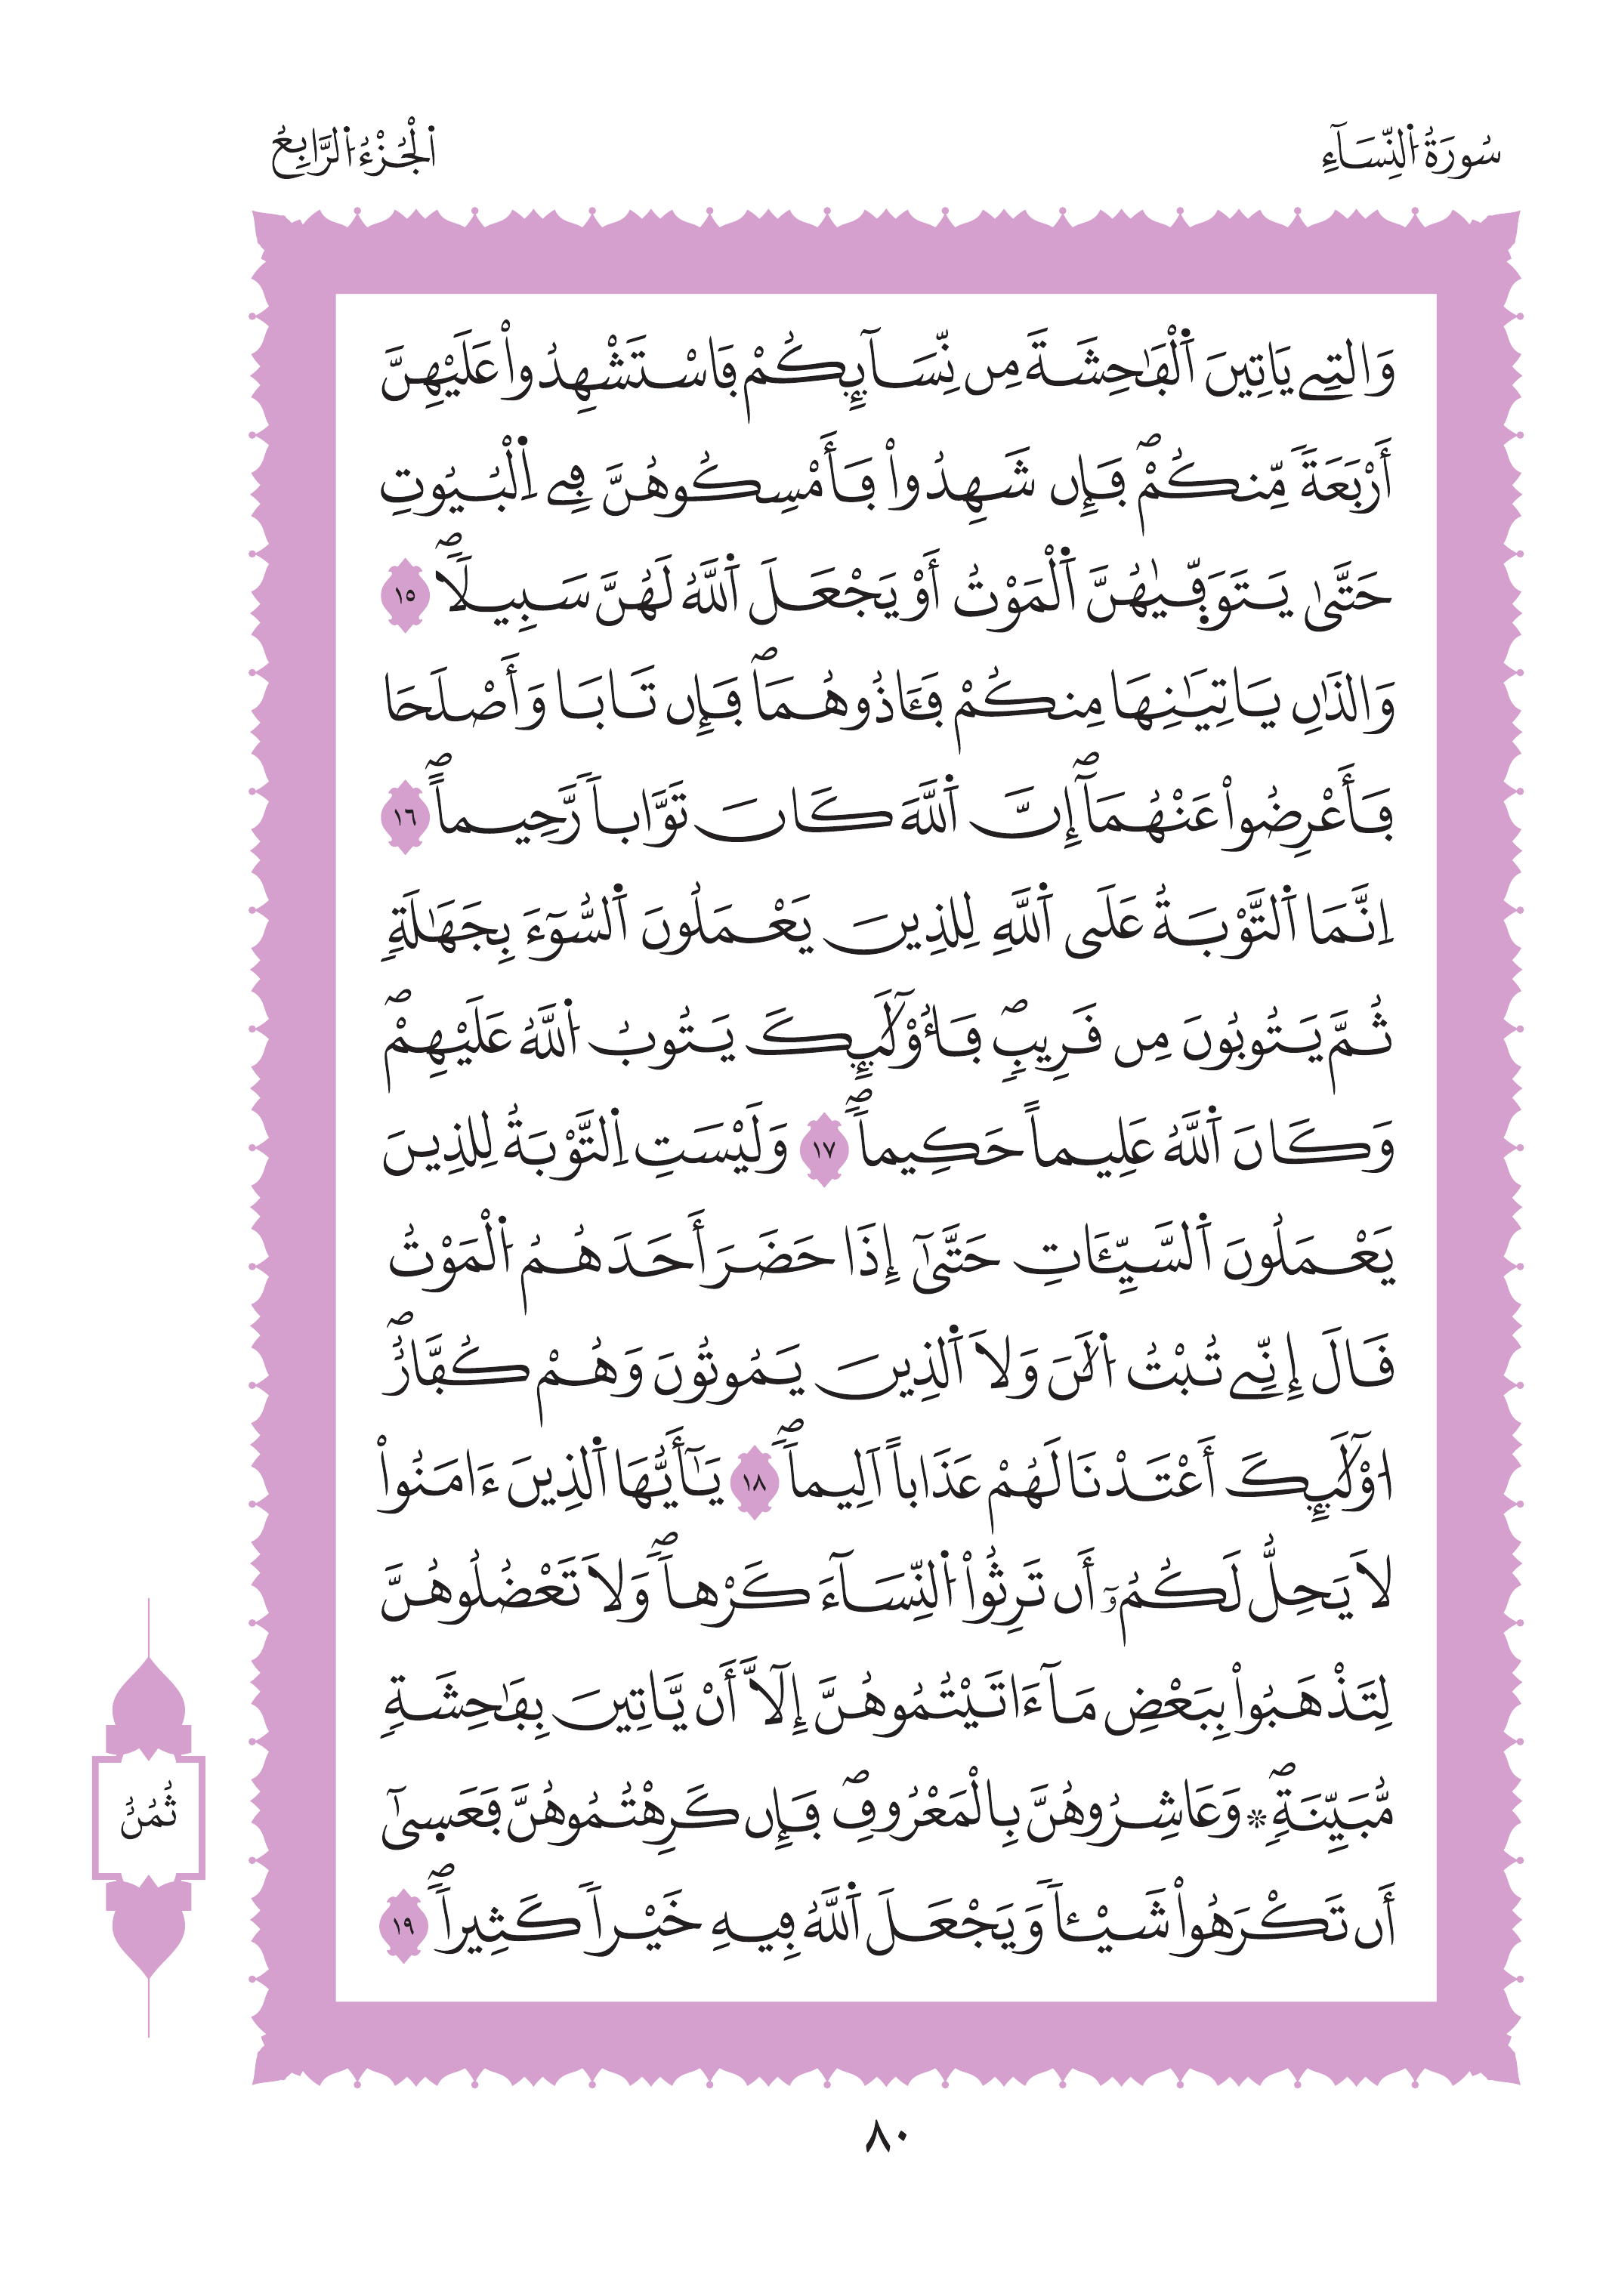 سُورَةُ اُ۬لنِّسَآءِ
اُ۬لْجُزْءُ اُ۬لرَّابِعُ
وَالتِے يَاتِينَ اَ۬لْفَٰحِشَةَ مِن نِّسَآئِكُمْ فَاسْتَشْهِدُواْ عَلَيْهِنَّ
أَرْبَعَةٗ مِّنكُمْۖ فَإِن شَهِدُواْ فَأَمْسِكُوهُنَّ فِے اِ۬لْبُيُوتِ
حَتَّىٰ يَتَوَفّ۪يٰهُنَّ اَ۬لْمَوْتُ أَوْ يَجْعَلَ اَ۬للَّهُ لَهُنَّ سَبِيلاٗۖ ١٥
وَالذَٰنِ يَاتِيَٰنِهَا مِنكُمْ فَـَٔاذُوهُمَاۖ فَإِن تَابَا وَأَصْلَحَا
فَأَعْرِضُواْ عَنْهُمَآۖ إِنَّ اَ۬للَّهَ كَانَ تَوَّاباٗ رَّحِيماًۖ ١٦
اِنَّمَا اَ۬لتَّوْبَةُ عَلَى اَ۬للَّهِ لِلذِينَ يَعْمَلُونَ اَ۬لسُّوٓءَ بِجَهَٰلَةٖ
ثُمَّ يَتُوبُونَ مِن قَرِيبٖۖ فَأُوْلَٰٓئِكَ يَتُوبُ اُ۬للَّهُ عَلَيْهِمْۖ
وَكَانَ اَ۬للَّهُ عَلِيماً حَكِيماٗۖ ١٧ وَلَيْسَتِ اِ۬لتَّوْبَةُ لِلذِينَ
يَعْمَلُونَ اَ۬لسَّيِّـَٔاتِ حَتَّىٰٓ إِذَا حَضَرَ أَحَدَهُمُ اُ۬لْمَوْتُ
قَالَ إِنِّے تُبْتُ اُ۬لَٰنَ وَلَا اَ۬لذِينَ يَمُوتُونَ وَهُمْ كُفَّارٌۖ
ا۟وْلَٰٓئِكَ أَعْتَدْنَا لَهُمْ عَذَاباً اَلِيماٗۖ ١٨ يَٰٓأَيُّهَا اَ۬لذِينَ ءَامَنُواْ
لَا يَحِلُّ لَكُمُۥٓ أَن تَرِثُواْ اُ۬لنِّسَآءَ كَرْهاٗۖ وَلَا تَعْضُلُوهُنَّ
لِتَذْهَبُواْ بِبَعْضِ مَآ ءَاتَيْتُمُوهُنَّ إِلَّآ أَنْ يَّاتِينَ بِفَٰحِشَةٖ
مُّبَيِّنَةٖۖ ۞ وَعَاشِرُوهُنَّ بِالْمَعْرُوفِۖ فَإِن كَرِهْتُمُوهُنَّ فَعَس۪ىٰٓ
أَن تَكْرَهُواْ شَيْـٔاٗ وَيَجْعَلَ اَ۬للَّهُ فِيهِ خَيْراٗ كَثِيراٗۖ ١٩
ثُمُنُ
٨٠